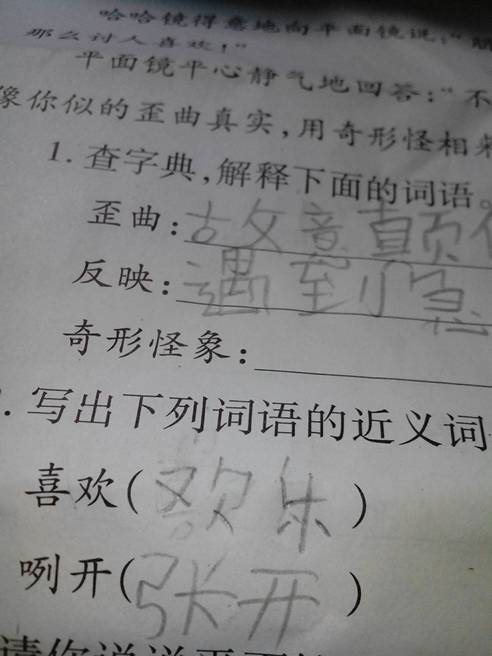 哈哈镜得意地向平面镜说:"
那么讨人喜欢!"
平面镜平心静气地回答:"不
像你似的歪曲真实,用奇形怪相来
1.查字典,解释下面的词语。
歪曲:故意颠
反映:遇到
奇形怪象:
.写出下列词语的近义词
喜欢(欢乐)
咧开(张开)
请你说说平面